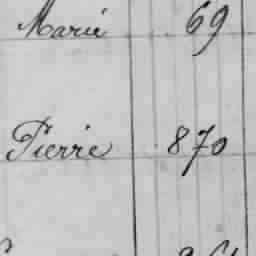 Marie 69
Pierre 870